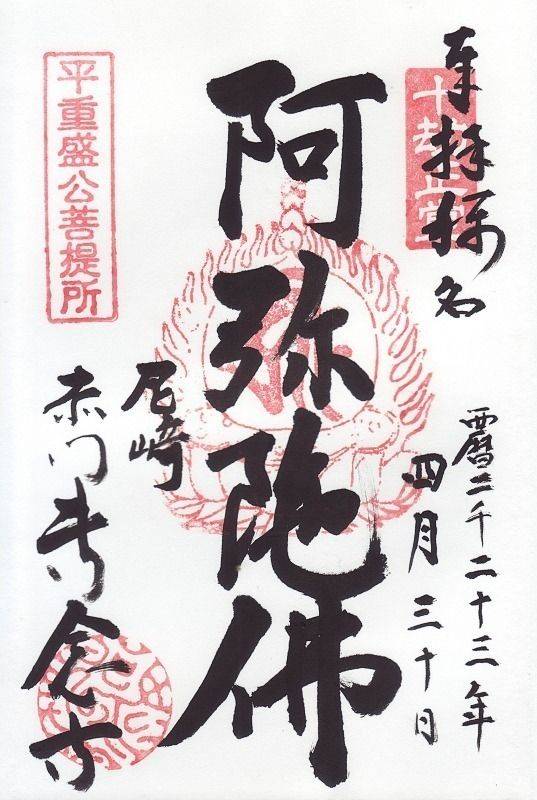 奉拝称名
十劫正覚
西暦二千二十三年
四月三十日
阿弥陀佛
尼崎
赤門専念寺
平重盛公菩提所